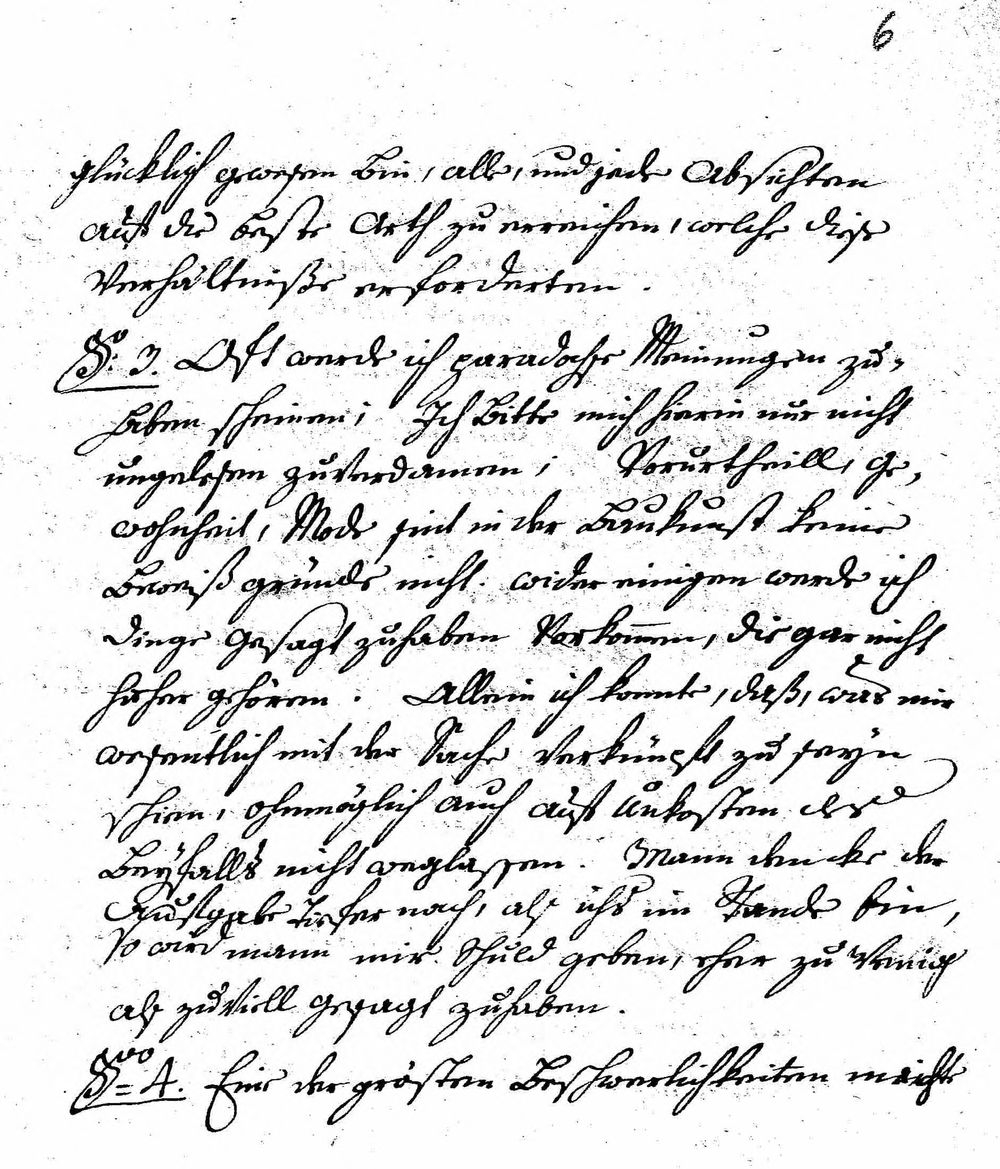 6
glücklich gewesen bin, alle, und jede Absichten
auf die beste Arth zu erreichen, welche diese
Verhältniße erforderten.
§o: 3. Oft werde ich paradoxe Meinungen zu-
haben scheinen; Ich bitte mich hierin nur nicht
ungelesen zuverdamen; Vorurtheill, Ge-
wohnheit, Mode sint in der Baukunst keine
Beweiß gründe nicht. wider einigen werde ich
dinge gesagt zuhaben Vorkommen, die gar nicht
hieher gehören. Allein ich konnte, daß, was mir
wesentlich mit der Sache Verknüpft zu seyn
schien, ohnmöglich auch auf Unkosten des
Beyfalls nicht weglassen. Mann dencke der
Aufgabe Tiefer nach, als ichs im Stande bin,
so wird mann mir Schuld geben, eher zu Wenig
als zu Viell gesagt zuhaben.
§vo= 4. Eine der grösten Beschwerlichkeiten machte